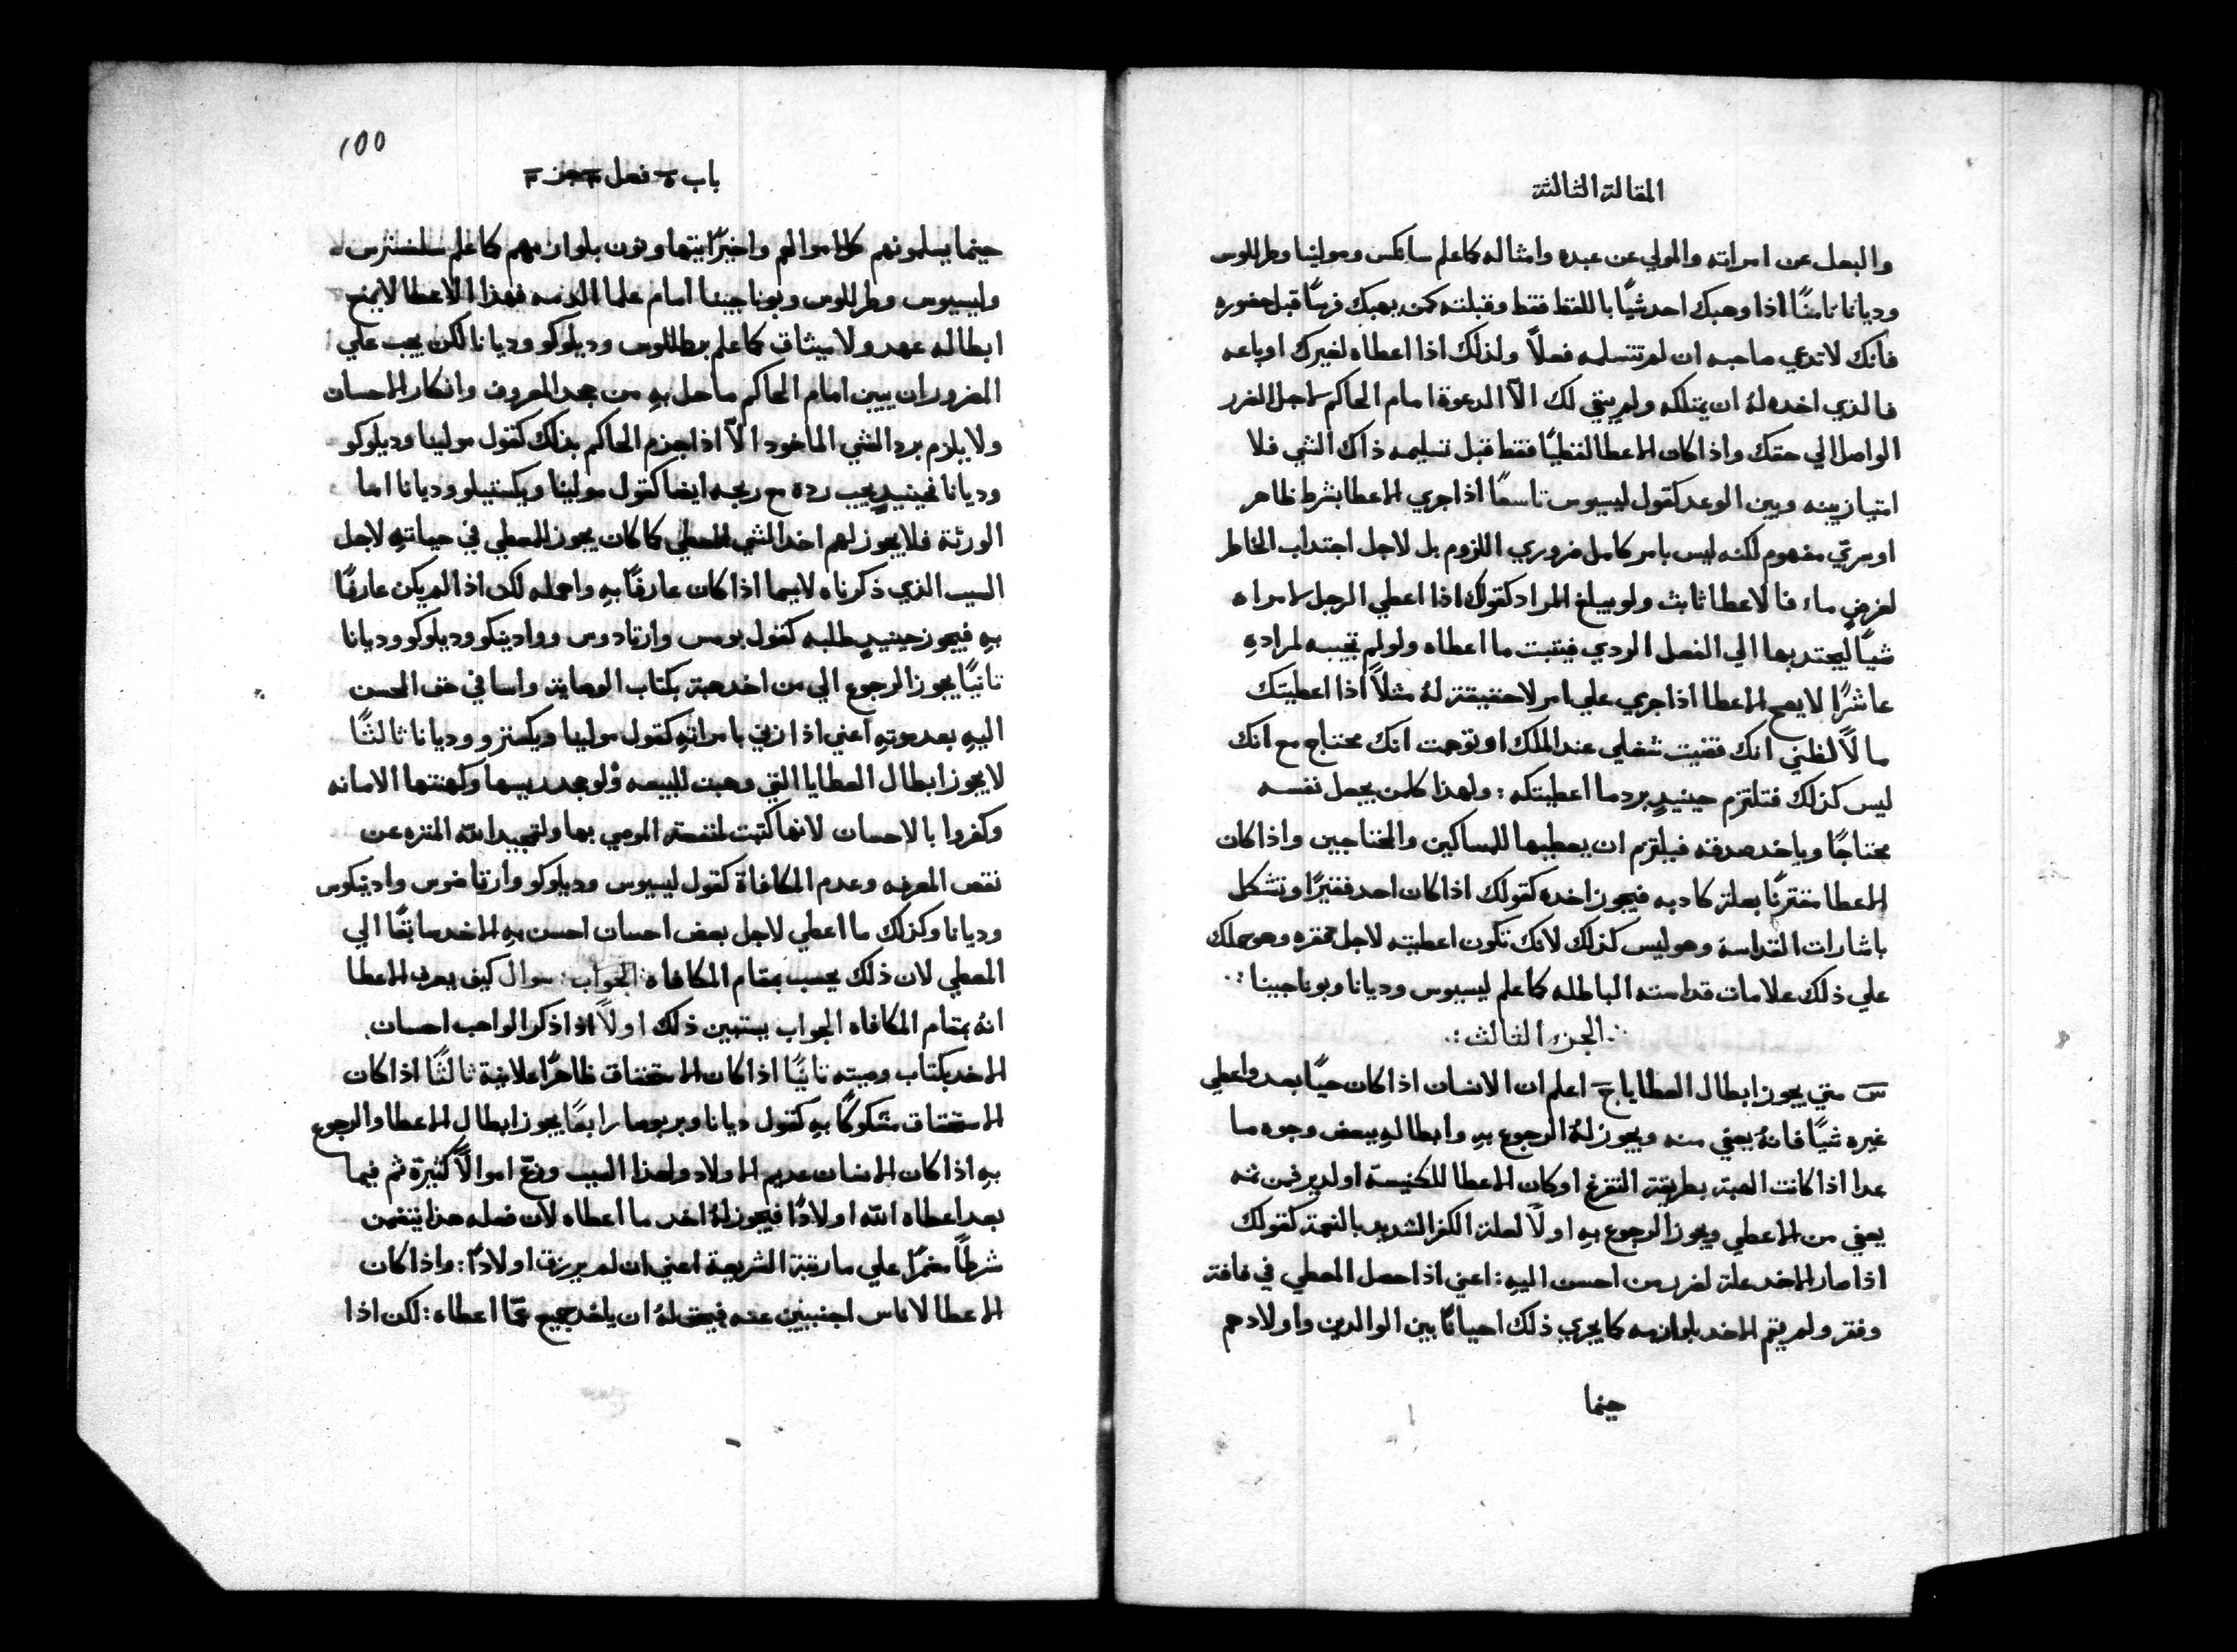 المقالة الثالثة
والبعل عن امراته والمولي عن عبده وامثاله كما علم سانكس ومولينا وطرللوس
وديانا ثامنًا اذا وهبك احد شيًا باللفظ فقط وقبلته كمن يهبك فرسًا قبل حضوره
فانك لا تدعي صاحبه ان لم تتسلمه فعلاً ولذلك اذا اعطاه لغيرك او باعه
فالذي اخده لهُ ان يمتلكه ولم يبقي لك الاّ الدعوة امام الحاكم لاجل الضرر
الواصل الي حقك واذا كان الاعطا لفظيًا فقط قبل تسليمه ذاك الشي فلا
امتياز بينه وبين الوعد كقول ليسيوس تاسعًا اذا جري الاعطا بشرط ظاهر
او سريّ مفهوم لكنه ليس بامر كامل ضروري اللزوم بل لاجل اجتداب الخاطر
لغرضٍ ما، فالاعطا ثابث ولو يبلغ المراد كقولك اذا اعطي الرجل لامراه
شيًا ليجتد بها الي الفعل الردي فيتبت ما اعطاه ولو لم تجيبه لمرادهِ
عاشرًا لا يصح الاعطا اذا جري علي امر لا حقيقة لهُ مثلاً اذا اعطيتك
مالاً لظني انك قضيت شغلي عند الملك او توهمت انك محتاج مع انك
ليس كذلك فتلتزم حينيدٍ برد ما اعطيتكه : ولهذا كلمن يجعل نفسه
محتاجًا وياخد صدقه فيلتزم ان يعطيها للمساكين والمحتاجين واذا كان
الاعطا مقترنًا بعلة كادبه فيجوز اخده كقولك اذا كان احد فقيرًا وتشكل
باشارات القداسة وهو ليس كذلك لانك تكون اعطيته لاجل فقره وهو حملك
علي ذلك علامات قداسته الباطله كما علم ليسيوس وديانا وبوناجينا :·
·: الجزء الثالث :·
س متي يجوز ابطال العطايا ج اعلم ان الانسان اذا كان حيًا بعد واعطي
غيره شيًا فانهُ يعفي منه ويجوز لهُ الرجوع بهِ وابطالهِ ببعض وجوه ما
عدا اذا كانت الهبة بطريقة التفرغ او كان الاعطا للكنيسة او لدير فمن ثمه
يعفي من الاعطي ويجوز الرجوع بهِ اولاً لعلة الكفر الشديد بالنعمة كقولك
اذا صار الاخد علة لضرر من احسن اليهِ : اعني اذا حصل المعطي في فاقة
وفقر ولم يقم الاخد بلوازمه كما يجري ذلك احيانًا بين الوالدين واولادهم
حينما
١٥٥
باب ٥ فصل ٣ جز ٣
حينما يسلمونهم كل اموالهم واخيرًا يتهاونون بلوازمهم كما علم سلفسترس
وليسيوس وطرللوس وبوناجينا امام علما الدمه فهذا الاعطا لا يمنع
ابطاله عهد ولا ميثاق كما علم برطللوس وديلوكو وديانا لكن يجب علي
المضرور ان يبين امام الحاكم ما حل بهِ من جحد المعروف وانكار الاحسان
ولا يلزم برد الشي الماخود الاّ اذا جزم الحاكم بذلك كقول مولينا وديلوكو
وديانا فحينيدٍ يجب رده مع ربحه ايضا كقول مولينا ويكستيلو وديانا اما
الورثة فلا يجوز لهم اخد الشي المعطي كما كان يجوز للمعطي في حياتهِ لاجل
السبب الذي ذكرناه لاسيما اذا كان عارفًا بهِ واهمله لكن اذا لم يكن عارفًا
بهِ فيجوز حينيدٍ طلبه كقول بومس وارتادوس ووادينكو وديلوكو وديانا
ثانيًا يجوز الرجوع الي من اخد هبة بكتاب الوصاية واسا في حق المحسن
اليهِ بعد موتهِ اعني اذا زني بامراتهِ كقول مولينا ويكستزو وديانا ثالثًا
لا يجوز ابطال العطايا التي وهبت للبيعه ولو جحد ريسها وكهنتها الامانه
وكفروا بالاحسان لانها كتبت لمنفعة الموصي بها ولتمجيد الله المنزه عن
نقص المعرفه وعدم المكافاة كقول ليسيوس وديلوكو وارتاضوس وادنيكوس
وديانا وكذلك ما اعطي لاجل بعض احسان احسن بهِ الاخد سابقًا الي
المعطي لان ذلك يحسب بمقام المكافاه الجواب : سوال كيف يعرف الاعطا
انهُ بمقام المكافاه الجواب يستبين ذلك اولاً اذا ذكر الواهب احسان
الاخد بكتاب وصيته ثانيًا اذا كان الاستحقاق ظاهرًا علانية ثالثًا اذا كان
الاستحقاق مشكوكًا بهِ كقول ديانا وبربوصا رابعًا يجوز ابطال الاعطا والرجوع
بهِ اذا كان الانسان عديم الاولاد ولهذا السبب وزّع اموالاً كثيرة ثم فيما
بعد اعطاه الله اولادًا فيجوز لهُ اخد ما اعطاه لان فعله هذا يتضمن
شرطًا مضمرًا علي ما رتبة الشريعة اعني ان لم يرزق اولادًا : واذا كان
الاعطا لاناس اجنبيين عنه فيحق لهُ ان ياخد جميع مّما اعطاه : لكن اذا